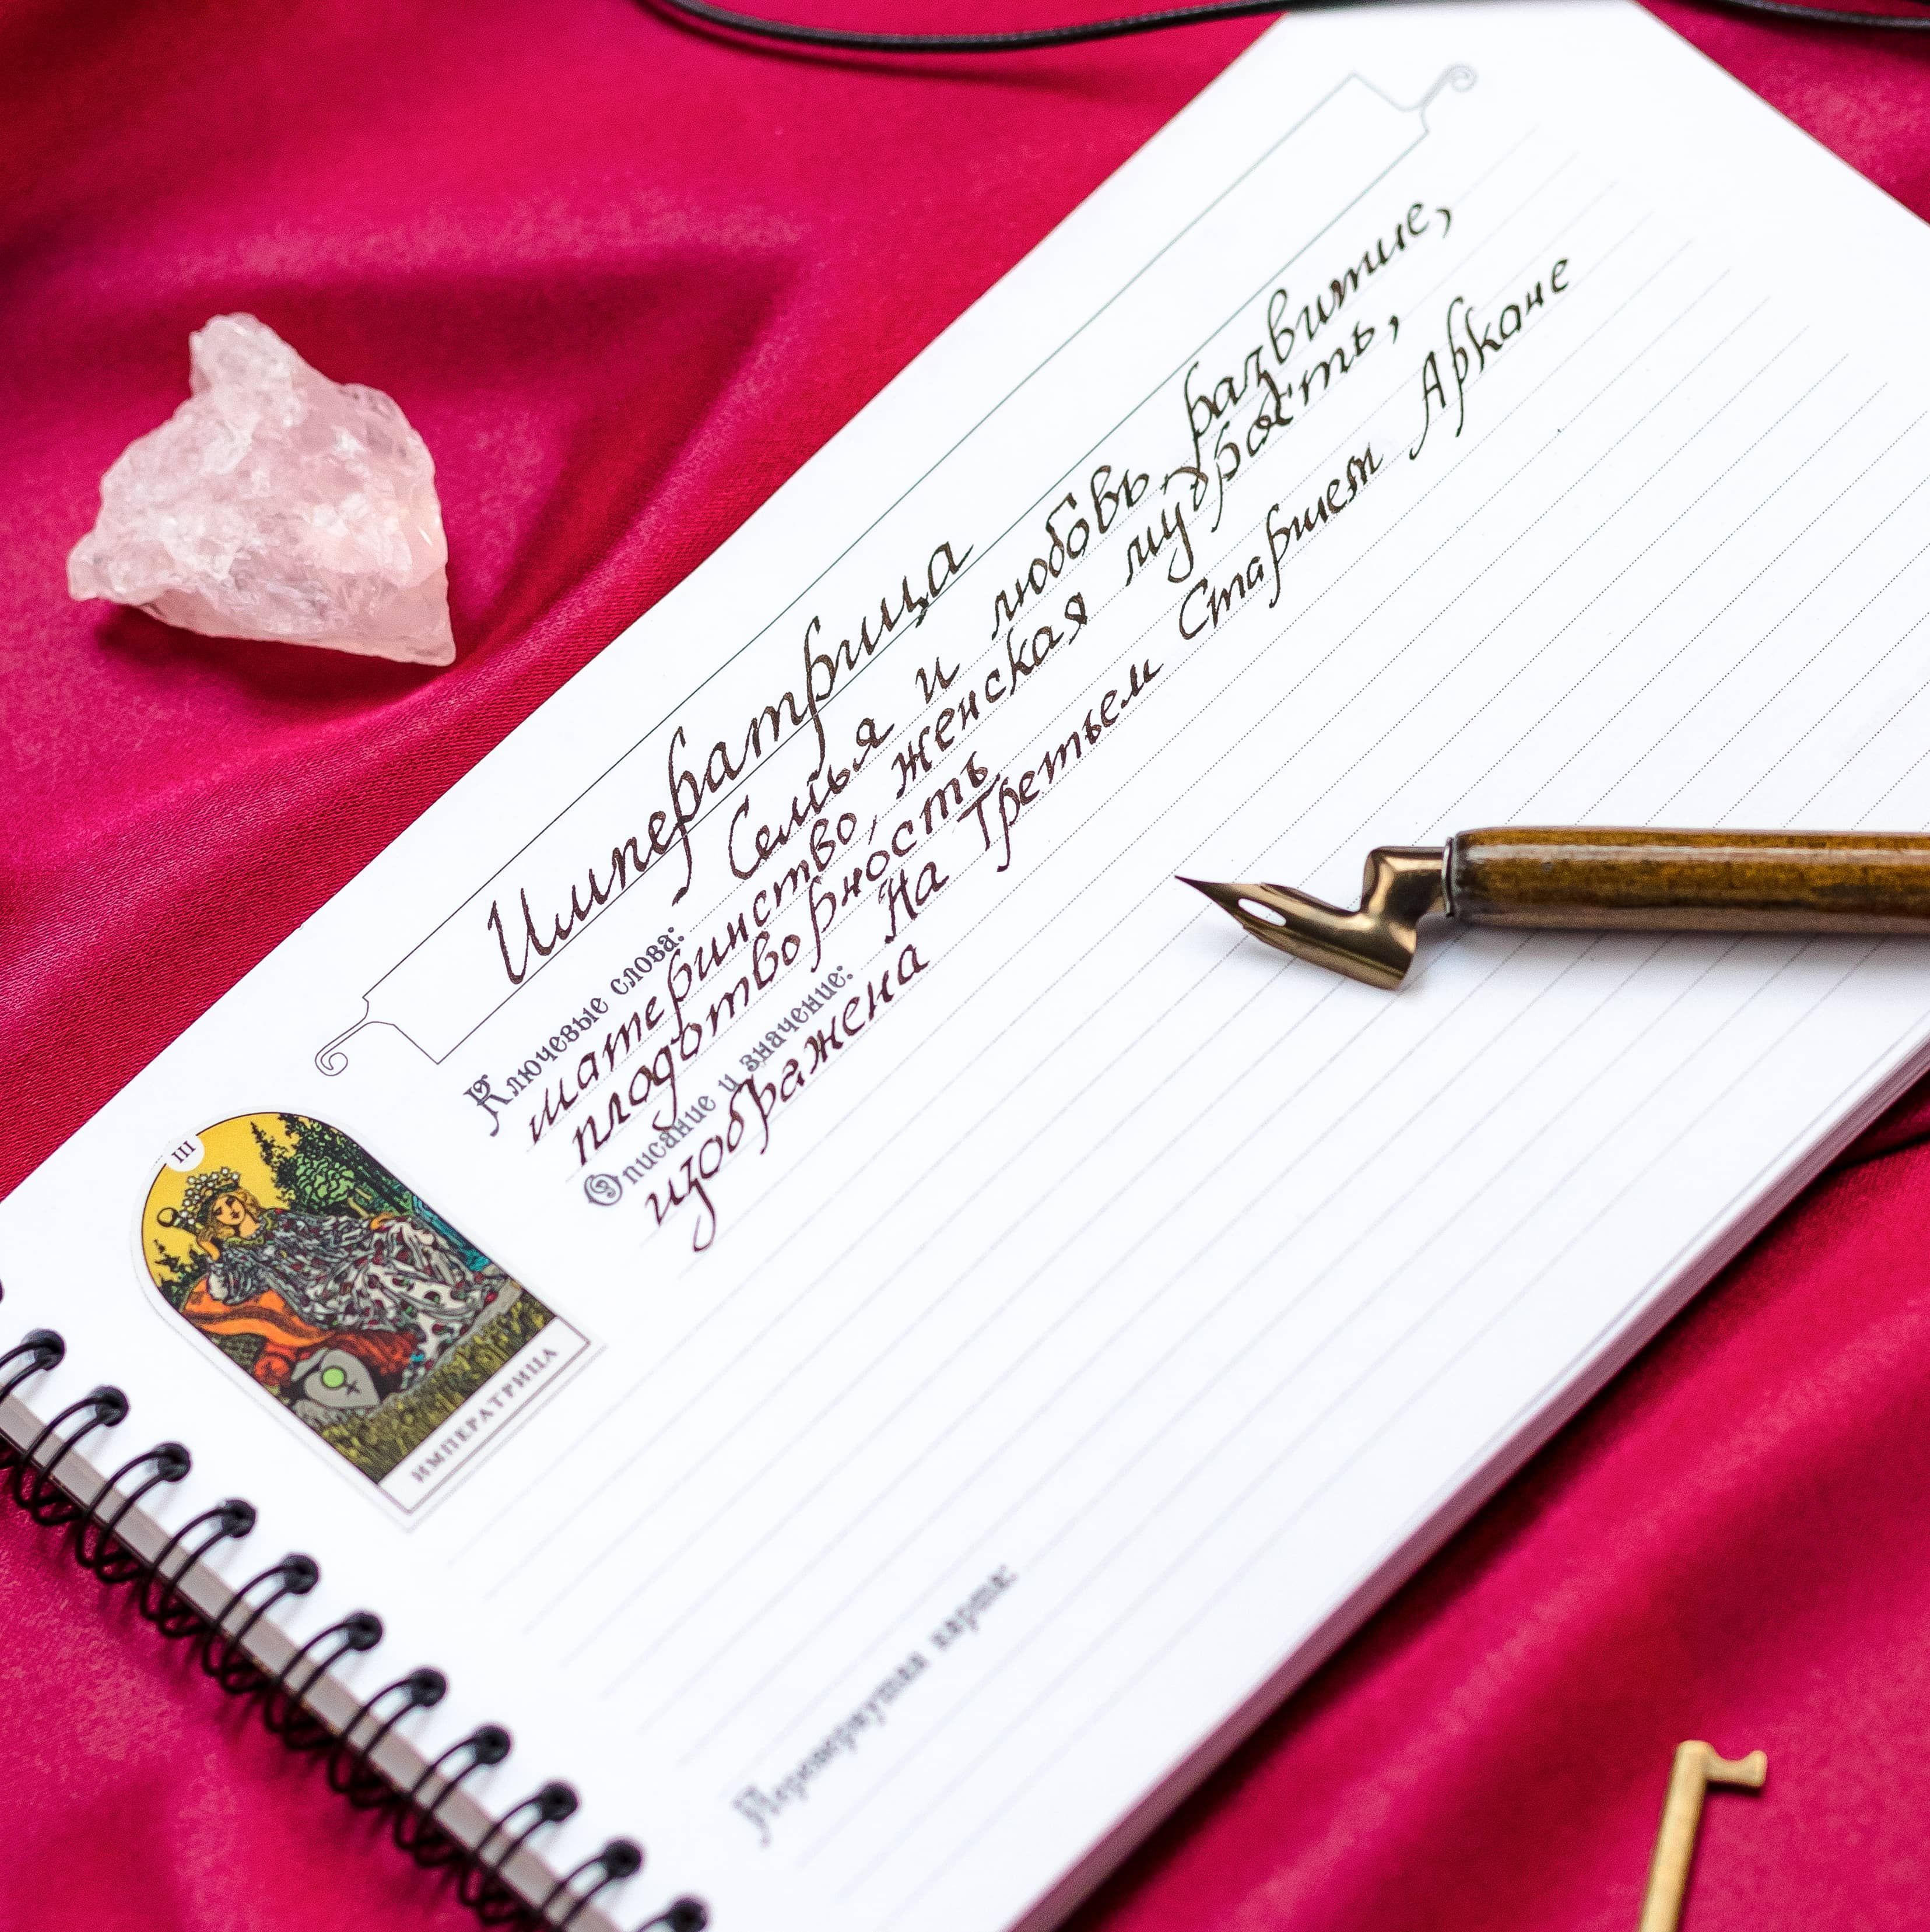 Императрица
Ключевые слова: Семья и любовь, развитие,
материнство, женская мудрость,
плодотворность
Описание и значение: На Третьем Старшем Аркане
изображена
III
ИМПЕРАТРИЦА
Перевернутая карта: